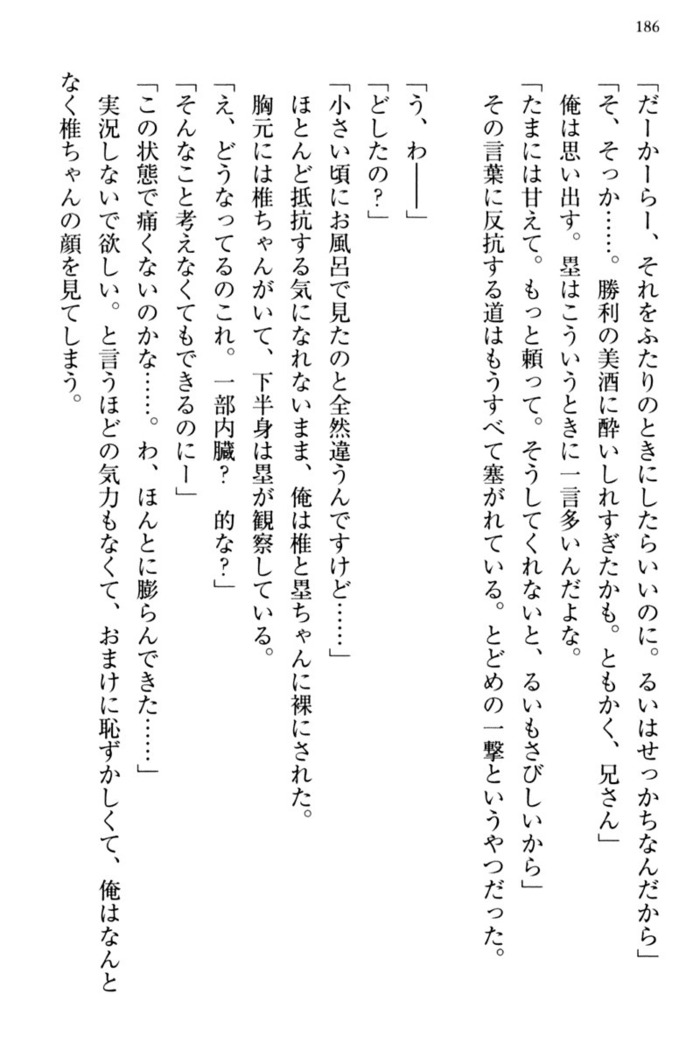 186
「だーかーらー、それをふたりのときにしたらいいのに。るいはせっかちなんだから」
「そ、そっか……。勝利の美酒に酔いしれすぎたかも。ともかく、兄さん」
俺は思い出す。塁はこういうときに一言多いんだよな。
「たまには甘えて。もっと頼って。そうしてくれないと、るいもさびしいから」
その言葉に反抗する道はもうすべて塞がれている。とどめの一撃というやつだった。
「う、わ――」
「どしたの？」
「小さい頃にお風呂で見たのと全然違うんですけど……」
ほとんど抵抗する気になれないまま、俺は椎と塁ちゃんに裸にされた。
胸元には椎ちゃんがいて、下半身は塁が観察している。
「え、どうなってるのこれ。一部内臓？　的な？」
「そんなこと考えなくてもできるのにー」
「この状態で痛くないのかな……。わ、ほんとに膨らんできた……」
実況しないで欲しい。と言うほどの気力もなくて、おまけに恥ずかしくて、俺はなんと
なく椎ちゃんの顔を見てしまう。